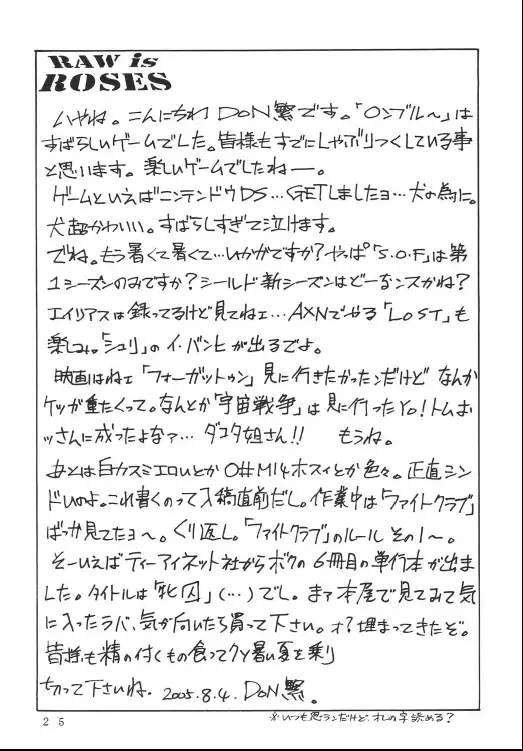 RAW is
ROSES
いやね。こんにちわ DoN繁です。「Oンブル〜」は
すばらしいゲームでした。皆様もすでにしゃぶりつくしている事
と思います。楽しいゲームでしたねー。
ゲームといえばニンテンドウDS…GETしましたョ…犬の為に。
犬超かわいい。すばらしすぎて泣けます。
でね。もう暑くて暑くて…いかがですか?やっぱ「S.O.F」は第
1シーズンのみですか?シールド新シーズンはどーなンスかね?
エイリアスは録ってるけど見てねェ…AXNでやる「LOST」も
楽しみ。「シュリ」のイ・バンヒが出るでよ。
映画はねェ「フォーガットゥン」見に行きたかったンだけど なんか
ケツが重たくって。なんとか「宇宙戦争」は見に行ったYo!トムお
ッさんに成ったよなァ… ダコタ姐さん!! もうね。
あとは白カスミエロいとか O#M14ホスィとか色々。正直シン
ドいのよ。これ書くのって入稿直前だし。作業中は「ファイトクラブ」
ばっか見てたョ〜。くり返し。「ファイトクラブ」のルール その1〜。
そーいえばティーアイネット社からボクの6冊目の単行本が出ま
した。タイトルは「牝囚」(…)でし。まァ本屋で見てみて気
に入ったラバ、気が向いたら買って下さい。オ?埋まってきたぞ。
皆様も精の付くもの食ってクソ暑い夏を乗り
切って下さいね. 2005.8.4. DoN繁。
※いつも思うンだけど、オレの字読める?
25